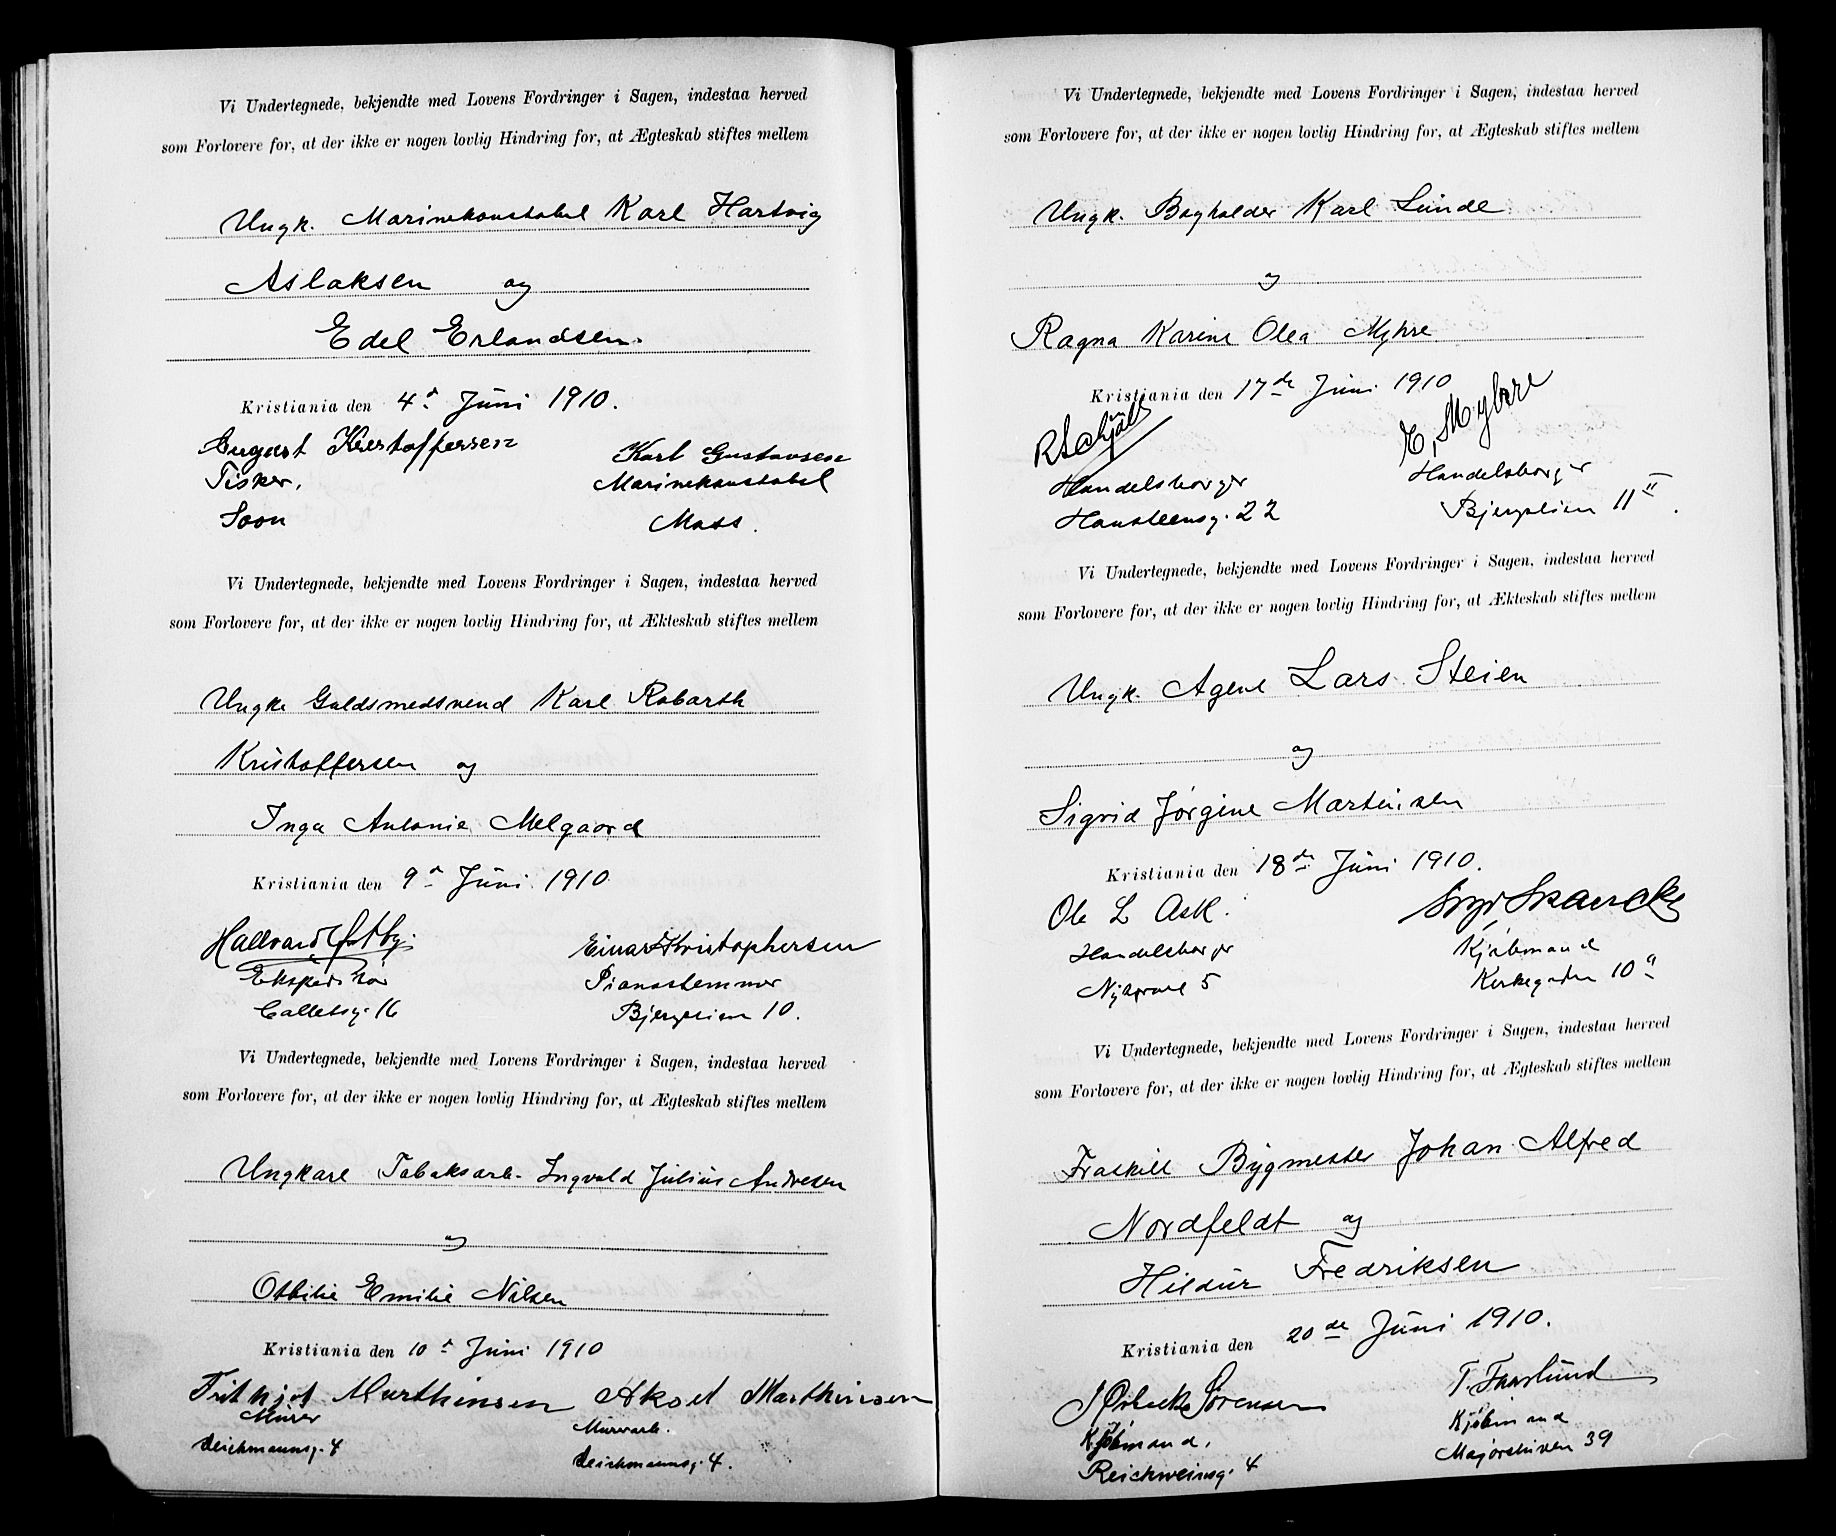 Vi Undertegnede, bekjendte med Lovens Fordringer i Sagen, indestaa herved
som Forlovere for, at der ikke er nogen lovlig Hindring for, at Ægteskab stiftes mellem
Ungk. Marinekonstabel Karl Hartvig
Aslaksen og
Edel Erlandsen.
Kristiania den 4d Juni 1910.
August Kristoffersen
Tisker,
Soon
Karl Gustavsen
Marinekonstabel
Moss.
Vi Undertegnede, bekjendte med Lovens Fordringer i Sagen, indestaa herved
som Forlovere for, at der ikke er nogen lovlig Hindring for, at Ækteskab stiftes mellem
Ungke Guldsmedsvend Karl Robarth
Kristoffersen og
Inga Antonie Melgaard
Kristiania den 9d Juni 1910
Hallvard Østby
Ekspeditør
Calletsg. 16
Einar Kristophersen
Pianostemmer
Bjergslien 10.
Vi Undertegnede, bekjendte med Lovens Fordringer i Sagen, indestaa herved
som Forlovere for, at der ikke er nogen lovlig Hindring for, at Ægteskab stiftes mellem
Ungkarl Tobaksarb. Ingvald Julius Andresen
og
Ottilie Emilie Nilsen
Kristiania den 10d Juni 1910
Frithjof Marthinsen
Murer
Deichmannsg. 4
Aksel Marthinsen
Murarb.
Deichmannsg. 4.
Vi Undertegnede, bekjendte med Lovens Fordringer i Sagen, indestaa herved
som Forlovere for, at der ikke er nogen lovlig Hindring for, at Ægteskab stiftes mellem
Ungk. Bogholder Karl Lunde
og
Ragna Karine Olea Myhre
Kristiania den 17de Juni 1910
Handelsborger
Hansteensg. 22
E. Myhre
Handelsborger
Bjergslien 11 II.
Vi Undertegnede, bekjendte med Lovens Fordringer i Sagen, indestaa herved
som Forlovere for, at der ikke er nogen lovlig Hindring for, at Ækteskab stiftes mellem
Ungk. Agent Lars Steien
og
Sigrid Jørgine Martinsen
Kristiania den 18de Juni 1910.
Ole L Ask.
Handelsborger
Nybrovei 5
Skancke
Kjøbmand
Kirkegaden 10a
Vi Undertegnede, bekjendte med Lovens Fordringer i Sagen, indestaa herved
som Forlovere for, at der ikke er nogen lovlig Hindring for, at Ægteskab stiftes mellem
Fraskilt Bygmester Johan Alfred
Nordfeldt og
Hildur Fredriksen
Kristiania den 20de Juni 1910.
Sørensen
Kjøbmand,
Reichweinsg. 4
T. Faaslund
Kjøbmand
Majorstuven 39